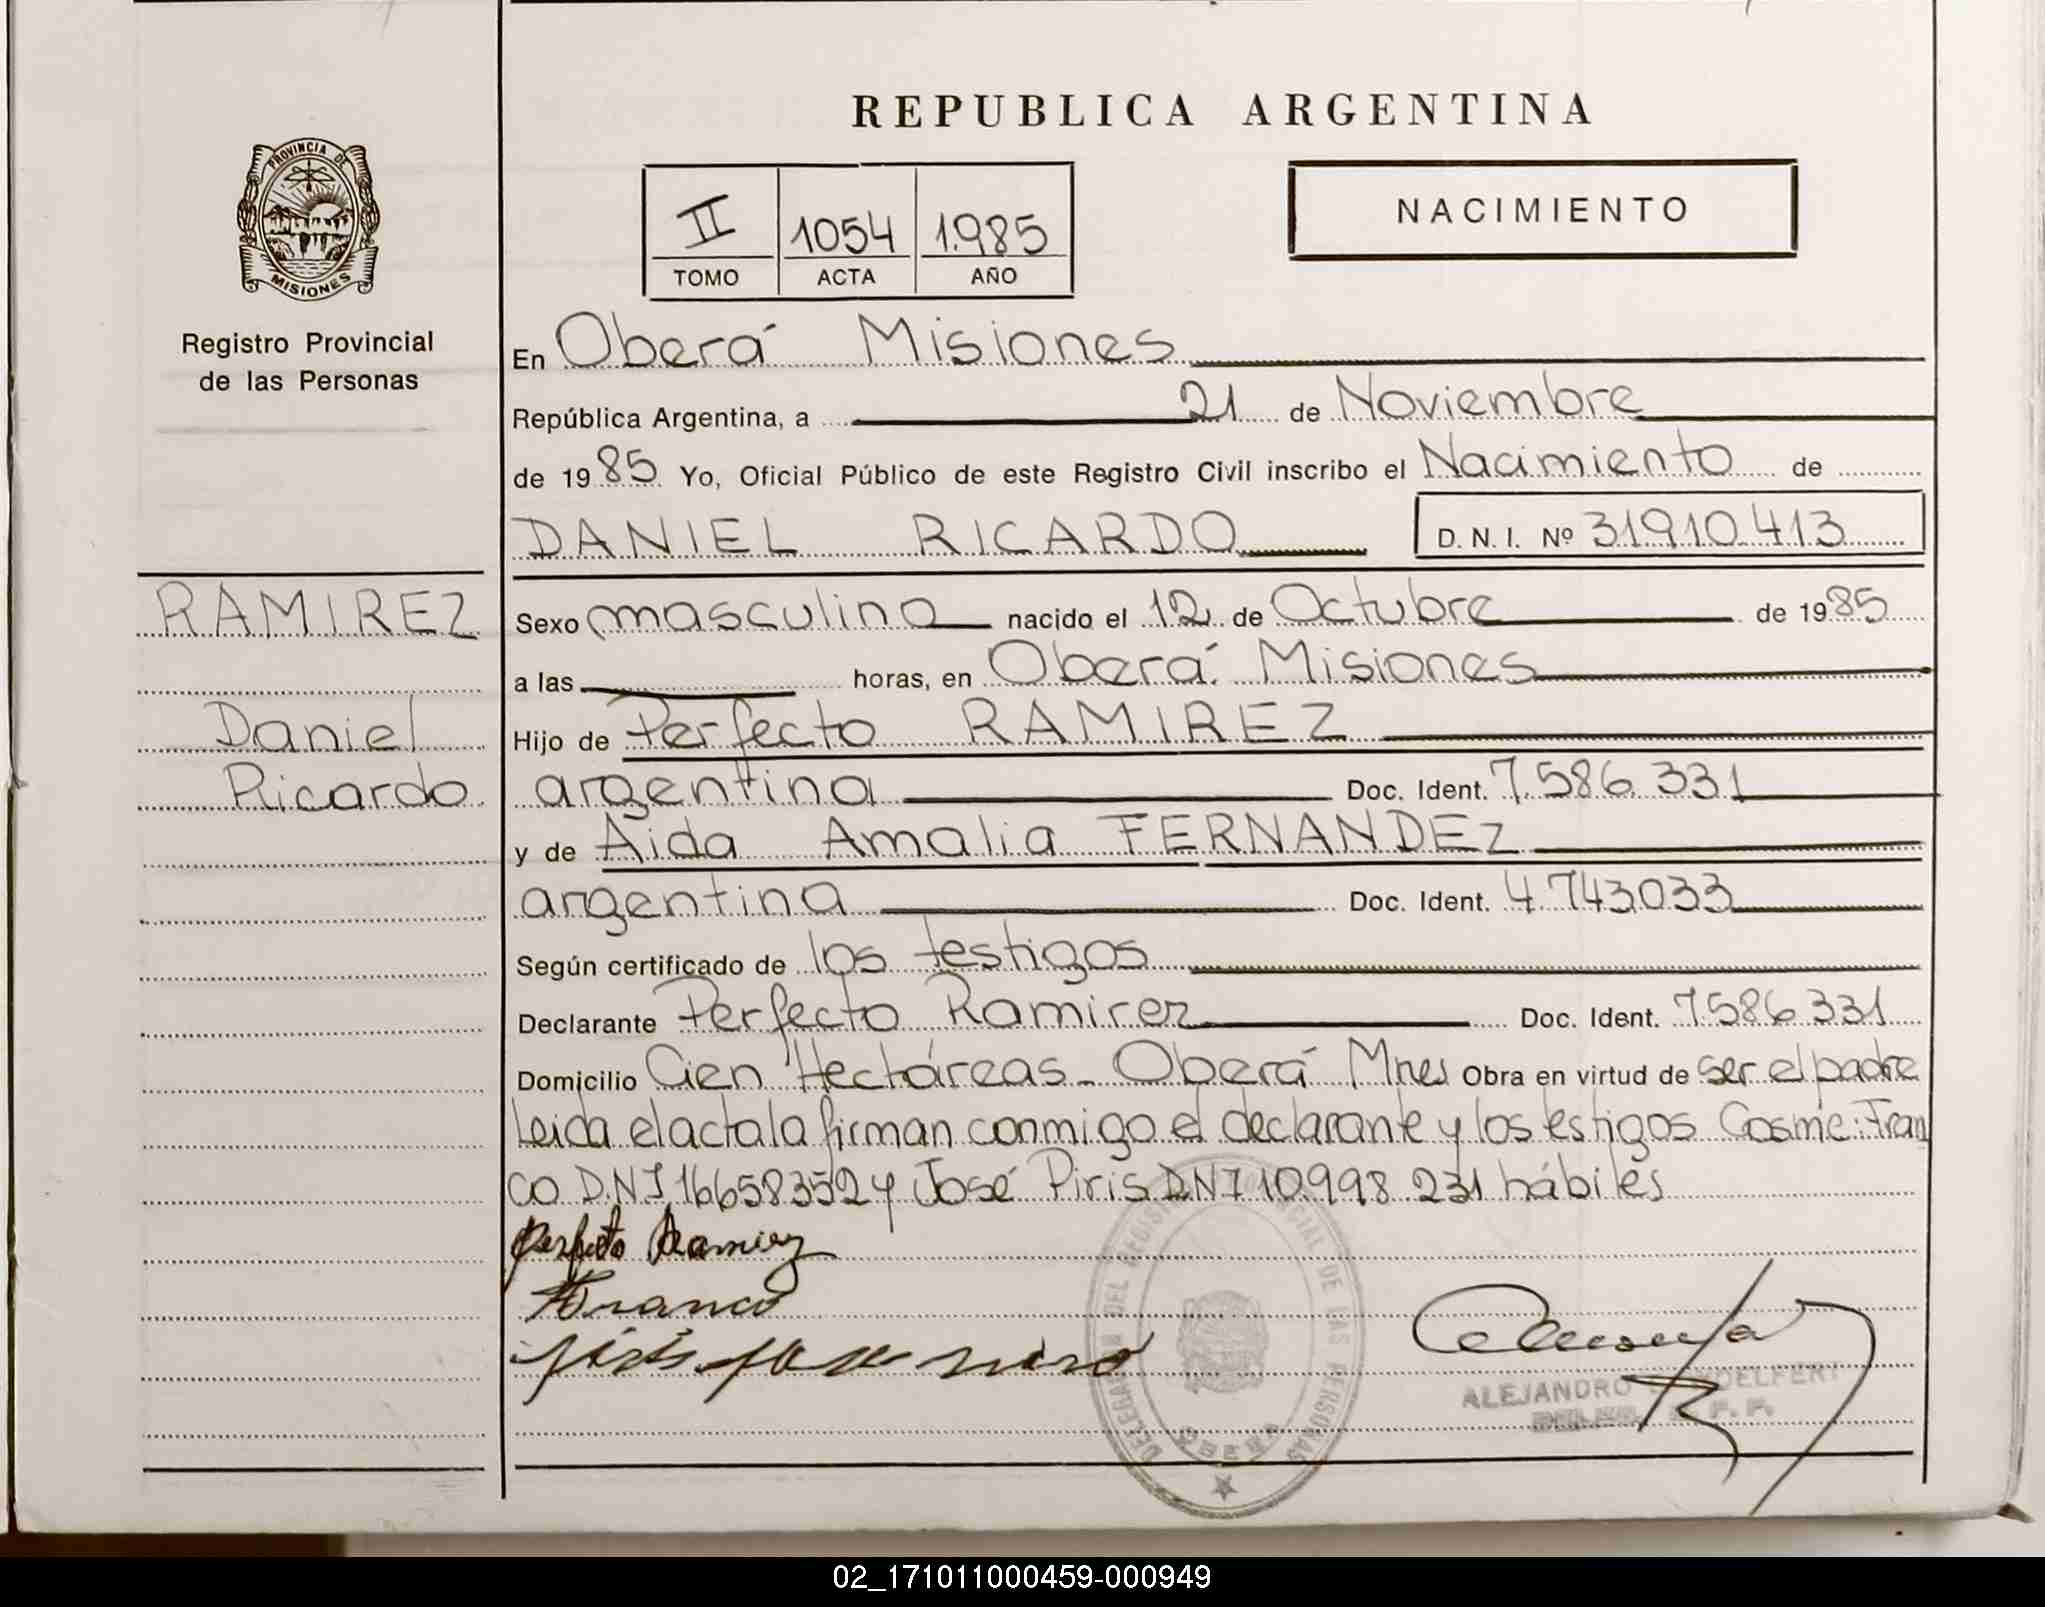 REPUBLICA ARGENTINA
PROVINCIA DE
MISIONES
Registro Provincial
de las Personas
II 1054 1.985
TOMO ACTA AÑO
NACIMIENTO
En Oberá Misiones
República Argentina, a 21 de Noviembre
de 1985 Yo, Oficial Público de este Registro Civil inscribo el Nacimiento de
DANIEL RICARDO D. N. I. Nº 31910413
RAMIREZ
Daniel
Ricardo
Sexo masculino nacido el 12 de Octubre de 1985
a las horas, en Oberá Misiones
Hijo de Perfecto RAMIREZ
argentina Doc. Ident. 7.586.331
y de Aida Amalia FERNANDEZ
argentina Doc. Ident. 4.743.033
Según certificado de los testigos
Declarante Perfecto Ramirez Doc. Ident. 7586331
Domicilio Cien Hectáreas - Oberá Mnes Obra en virtud de ser el padre
Leida el acta la firman conmigo el declarante y los testigos Cosme Fran
co D.N.I 16658352 y José Piris D.N.I 10.998.231 hábiles
Perfecto Ramirez
Franco
DELEGACION DEL REGISTRO PROVINCIAL DE LAS PERSONAS
OBERA
ALEJANDRO
02_171011000459-000949